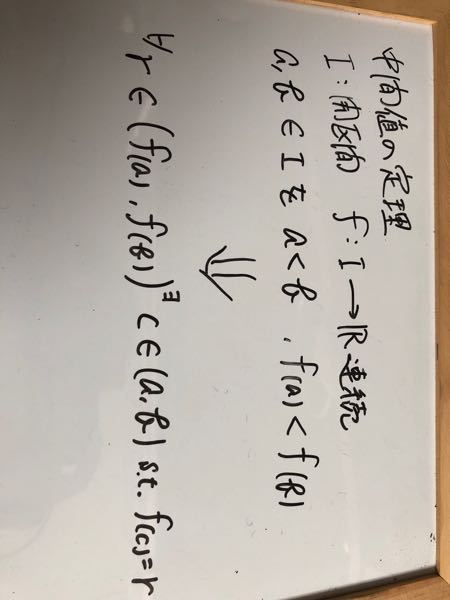 中间値の定理
I:開区间 f:I→ℝ連続
a,b∈Iを a<b, f(a)<f(b)
⇓
∀r∈(f(a),f(b)) ∃c∈(a,b) s.t. f(c)=r